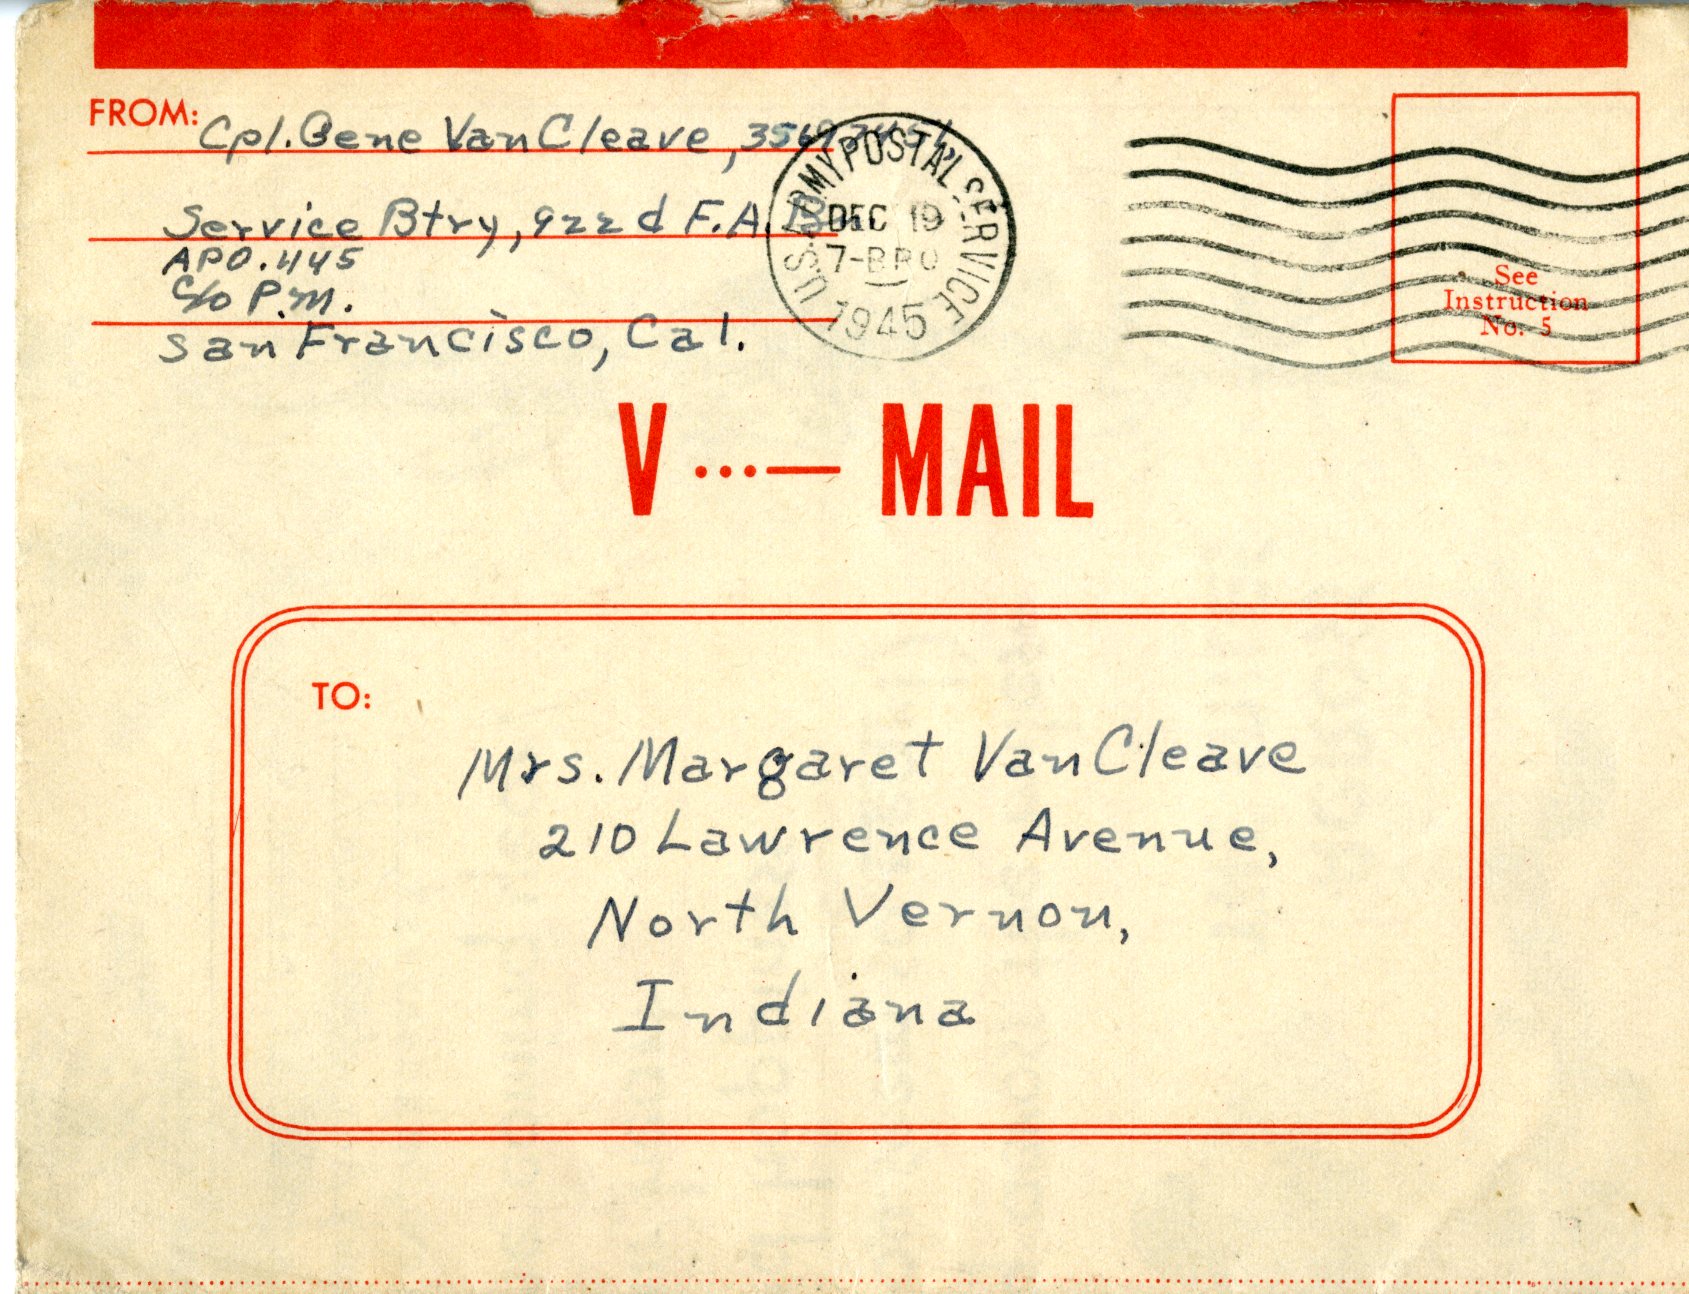 FROM: Cpl. Gene VanCleave,
Service Btry, 922d F.A.
APO. 445
c/o P.M.
San Francisco, Cal.
U.S. ARMY POSTAL SERVICE
DEC 19
7-BPO
1945
See
Instruction
No. 5
V ...— MAIL
TO:
Mrs. Margaret VanCleave
210 Lawrence Avenue,
North Vernon,
Indiana